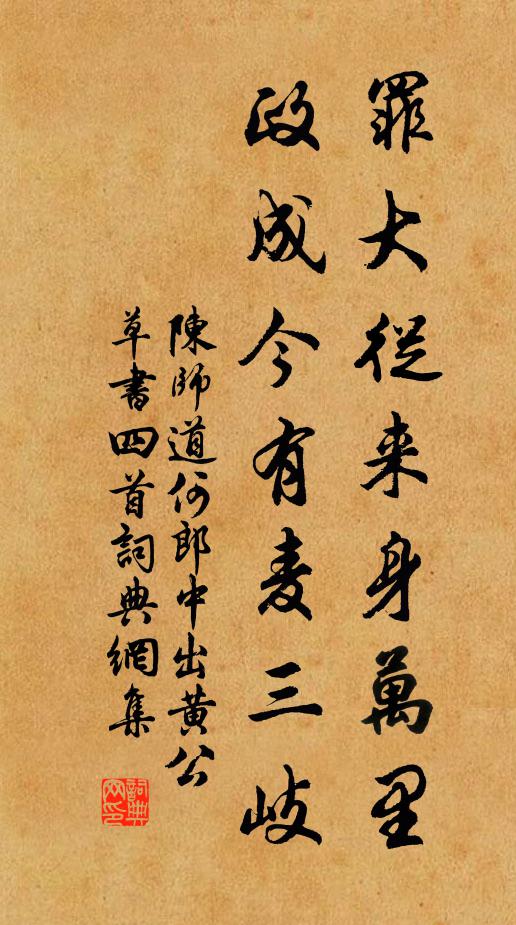 罪大從来身萬里
政成今有麦三岐
陳師道何郎中出黄公
草書四首詞典網集
詞典网印